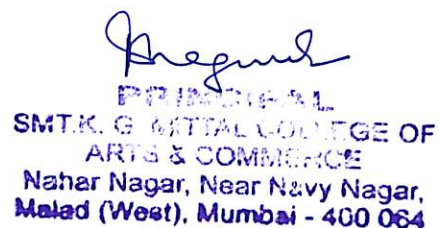 PRINCIPAL
SMT.K. G. MITTAL COLLEGE OF
ARTS & COMMERCE
Nahar Nagar, Near Navy Nagar,
Malad (West), Mumbai - 400 064